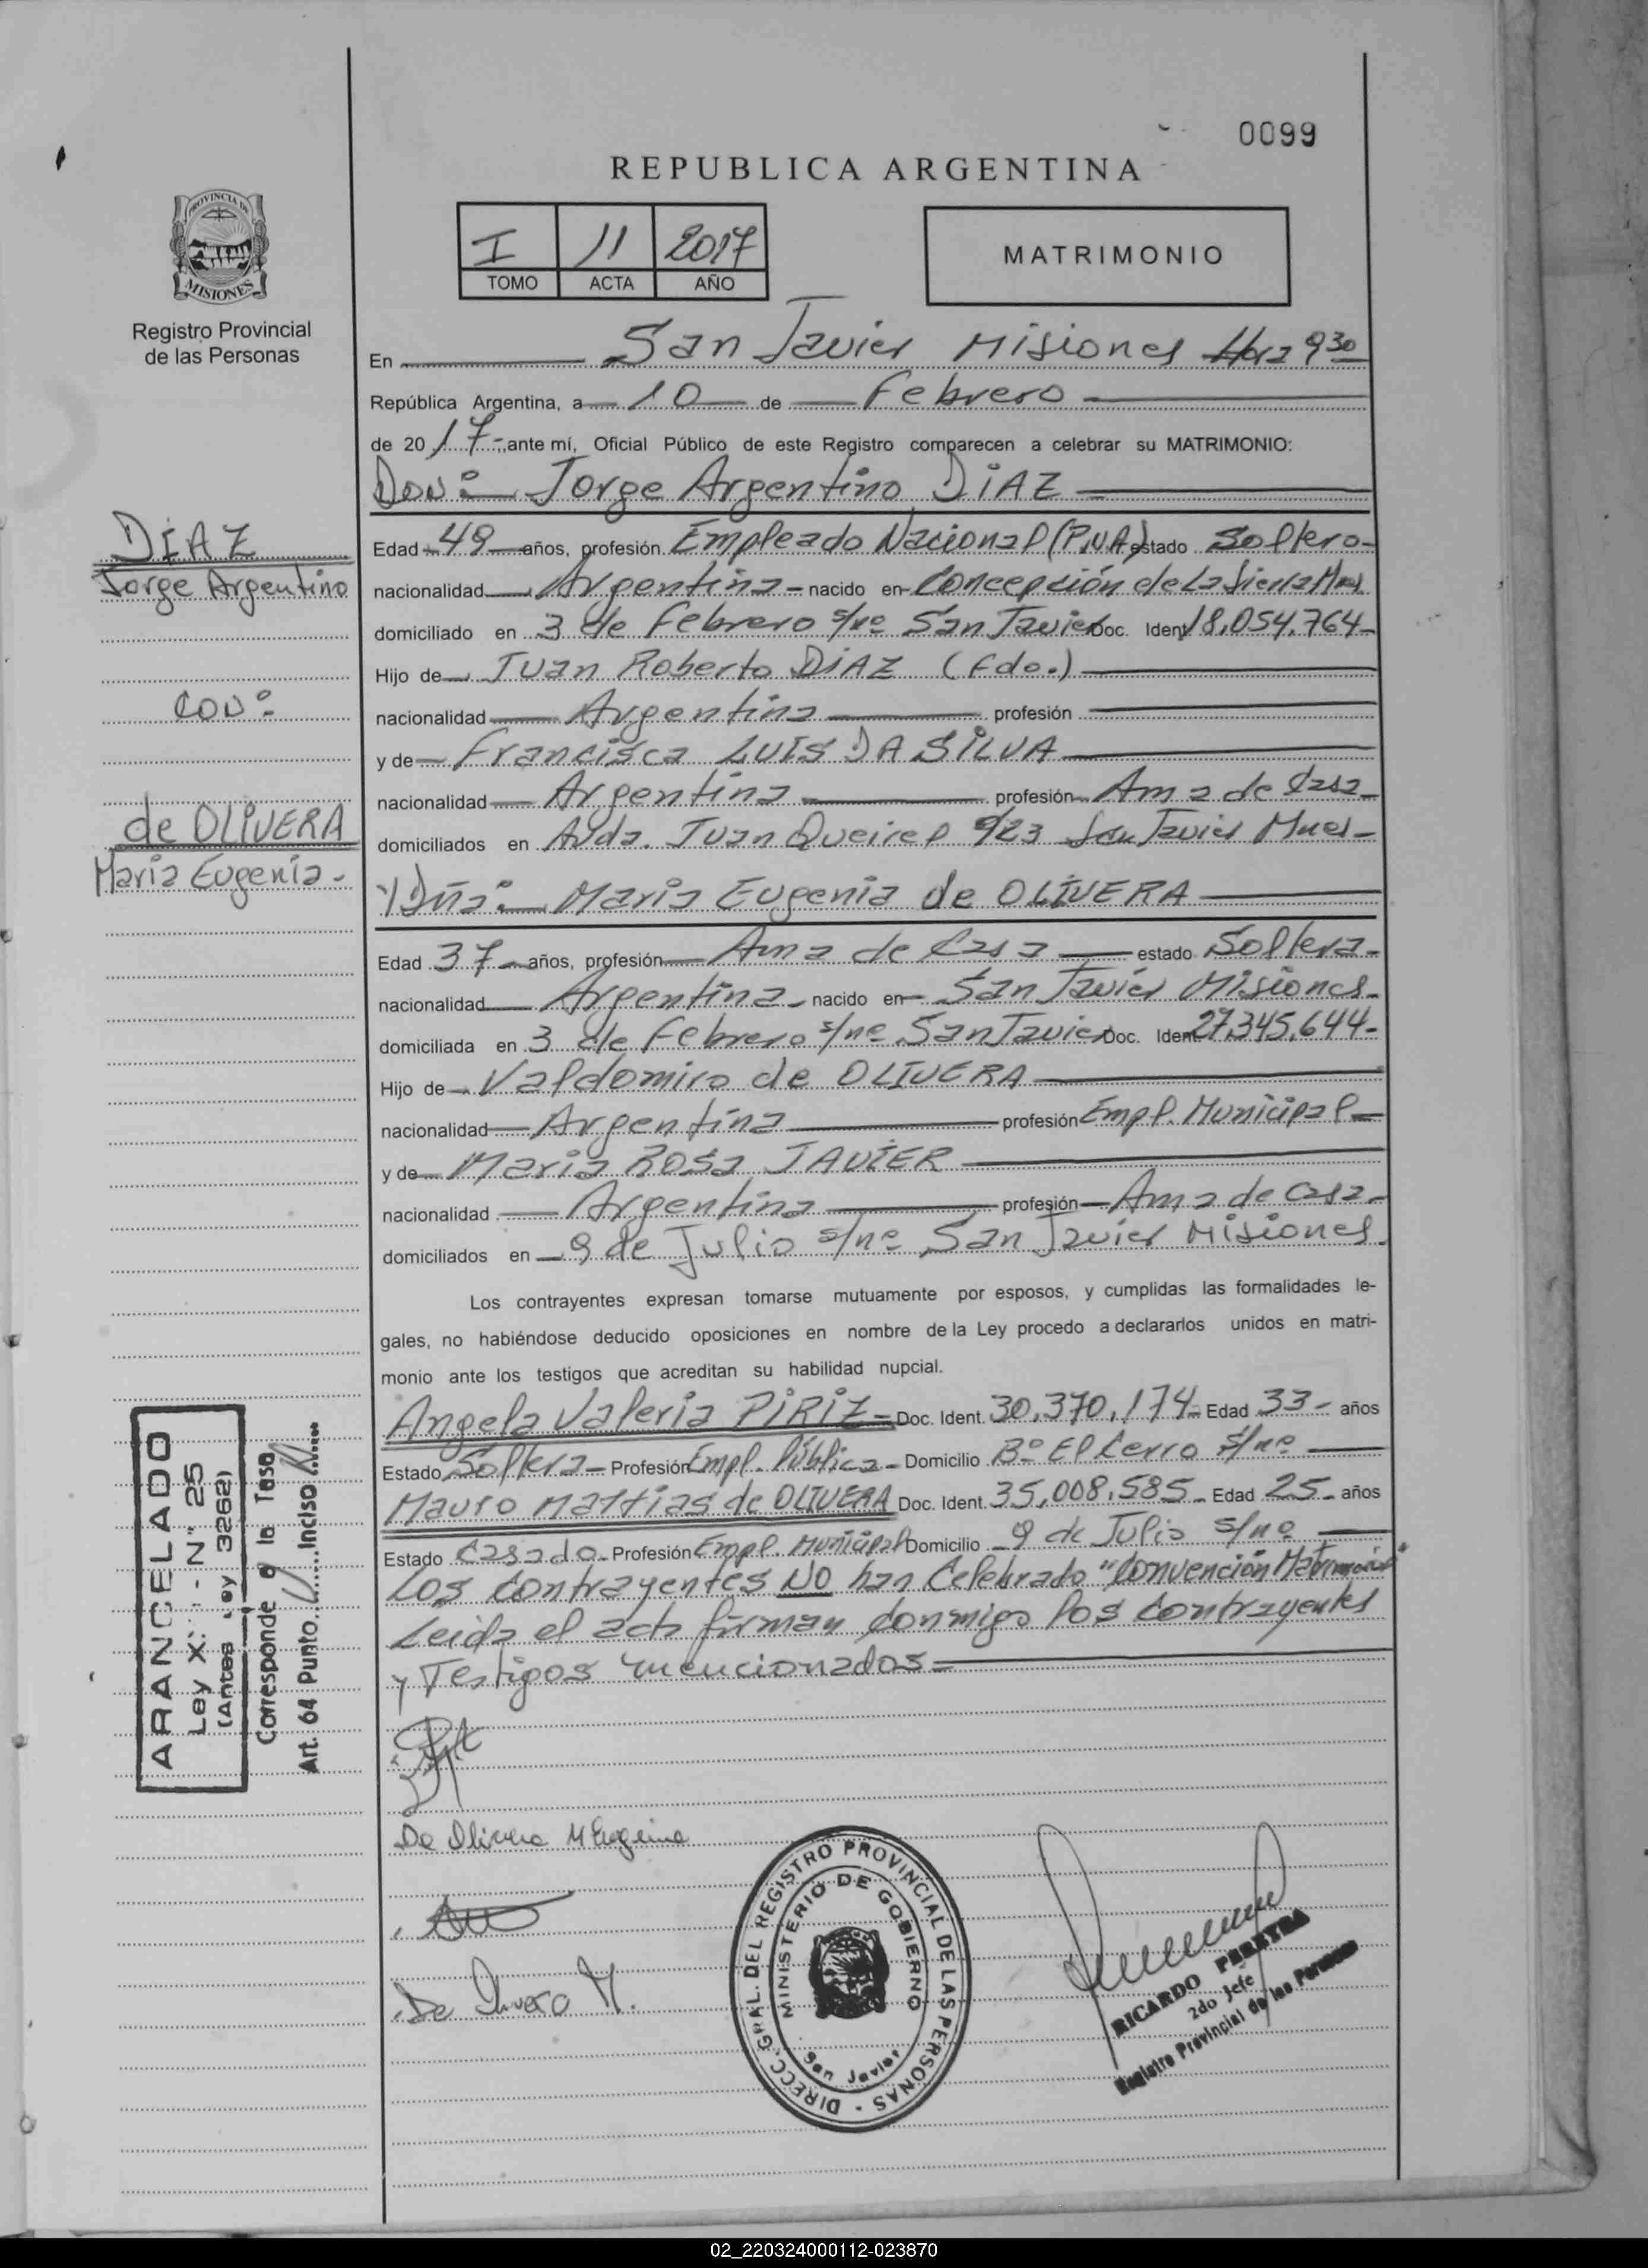 0099
REPUBLICA ARGENTINA
I 11 2017
TOMO ACTA AÑO
MATRIMONIO
PROVINCIA DE
MISIONES
Registro Provincial
de las Personas
En San Javier Misiones Hora 9 30
República Argentina, a 10 de Febrero
de 2017 ante mí, Oficial Público de este Registro comparecen a celebrar su MATRIMONIO:
Don: Jorge Argentino DiAZ
DÍAZ
Jorge Argentino
con:
de OLIVERA
Maria Eugenia.-
Edad 49 años, profesión Empleado Nacional (P.N.A) estado Soltero-
nacionalidad Argentina - nacido en Concepción de La Sierra Mnes
domiciliado en 3 de Febrero s/nº San Javier Doc. Ident 18.054.764-
Hijo de Juan Roberto DiAZ (fdo.)
nacionalidad Argentina profesión
y de Francisca LUIS DA SILVA
nacionalidad Argentina profesión Ama de Casa
domiciliados en Avda. Juan Queirel 923 San Javier Mnes-
y Dña: Maria Eugenia de OLIVERA
Edad 37 años, profesión Ama de Casa estado Soltera-
nacionalidad Argentina - nacido en San Javier Misiones-
domiciliada en 3 de Febrero s/nº San Javier Doc. Ident 27.345.644-
Hijo de Valdomiro de OLIVERA
nacionalidad Argentina profesión Empl. Municipal
y de Maria Rosa JAVIER
nacionalidad Argentina profesión Ama de Casa-
domiciliados en 9 de Julio s/nº San Javier Misiones.
Los contrayentes expresan tomarse mutuamente por esposos, y cumplidas las formalidades le-
gales, no habiéndose deducido oposiciones en nombre de la Ley procedo a declararlos unidos en matri-
monio ante los testigos que acreditan su habilidad nupcial.
Angela Valeria PIRIZ- Doc. Ident. 30.370.174- Edad 33- años
Estado Soltera- Profesión Empl. Pública- Domicilio Bº El Cerro s/nº
Mauro Mattias de OLIVERA Doc. Ident. 35.008.585- Edad 25- años
Estado Casado- Profesión Empl. Municipal Domicilio 9 de Julio s/nº
Los contrayentes NO han Celebrado "Convención Matrimonial"
Leida el acta firman conmigo los contrayentes
y Testigos mencionados=
ARANCELADO
Ley X: - N° 25
(Antes Ley 3262)
Corresponde a la Tasa
Art. 64 Punto Inciso
De Olivera M Eugenia
De Olivera M.
DIRECC. GRAL. DEL REGISTRO PROVINCIAL DE LAS PERSONAS -
MINISTERIO DE GOBIERNO
San Javier
RICARDO PEREYRA
2do Jefe
Registro Provincial de las Personas
02_220324000112-023870